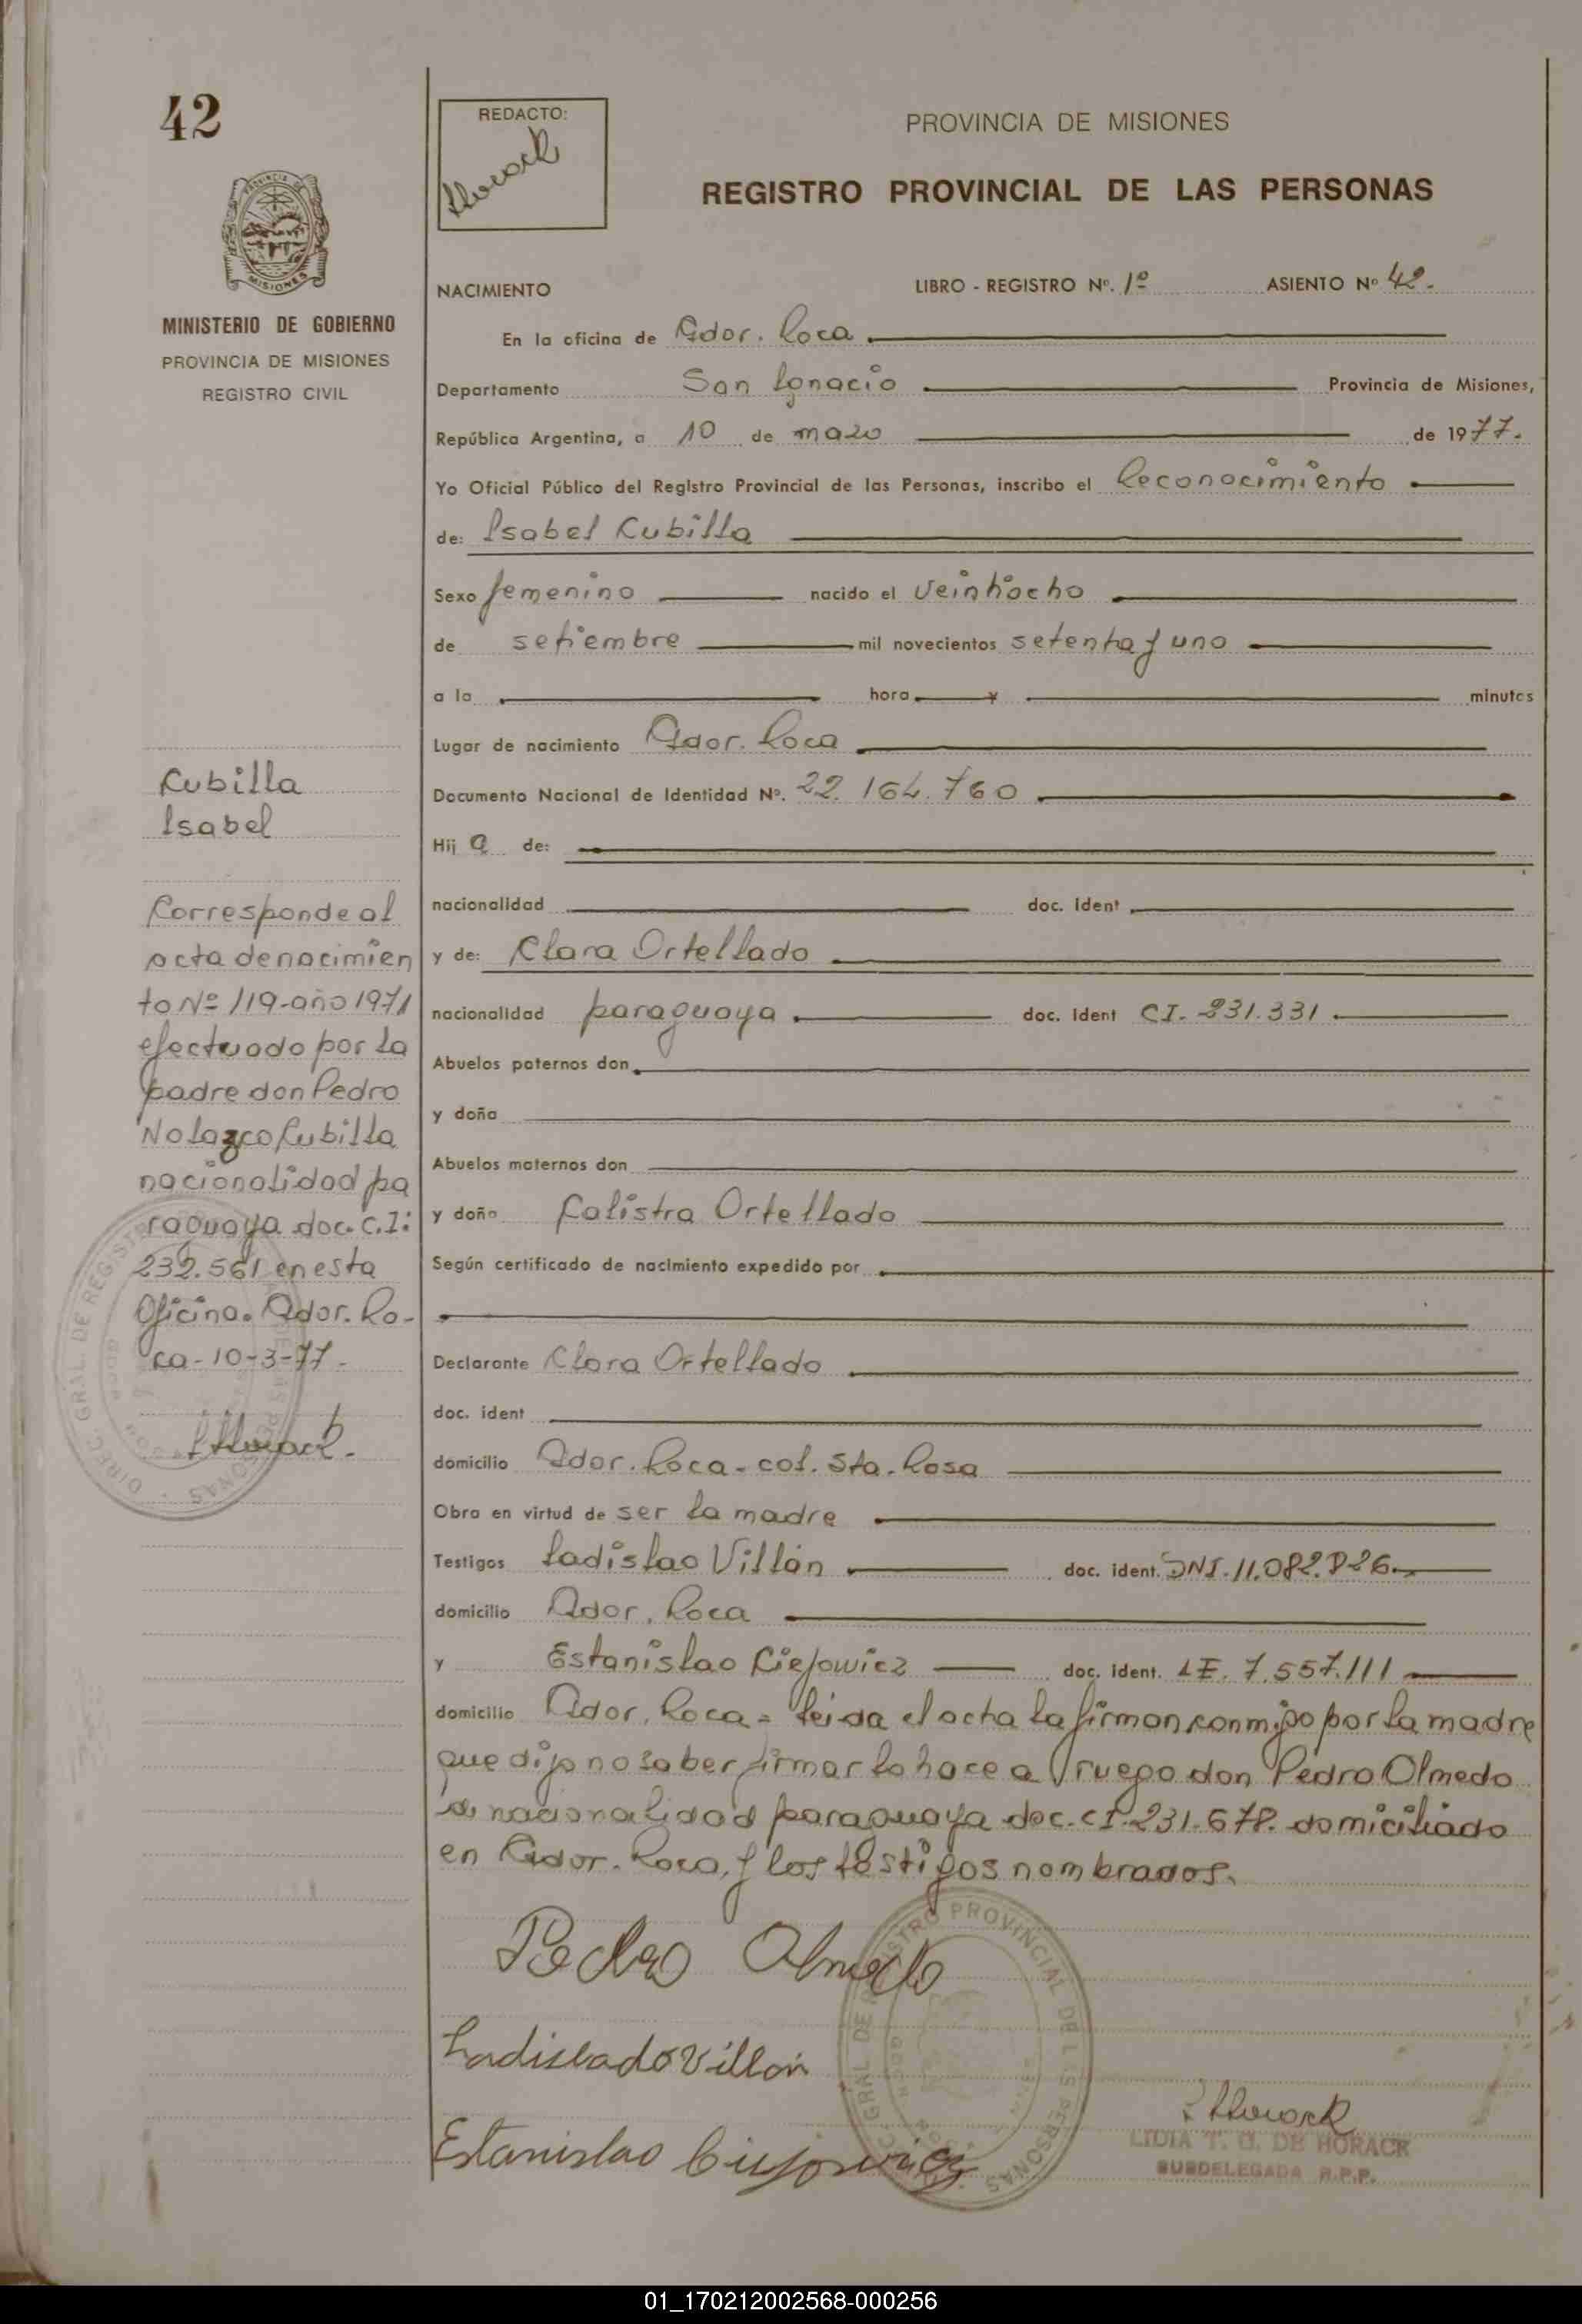 42
MINISTERIO DE GOBIERNO
PROVINCIA DE MISIONES
REGISTRO CIVIL
REDACTO:
PROVINCIA DE MISIONES
REGISTRO PROVINCIAL DE LAS PERSONAS
NACIMIENTO LIBRO - REGISTRO Nº. 1º ASIENTO Nº 42.
En la oficina de Gdor. Roca
Departamento San Ignacio Provincia de Misiones,
República Argentina, a 10 de mazo de 1977.
Yo Oficial Público del Registro Provincial de las Personas, inscribo el Reconocimiento
de: Isabel Cubilla
Sexo femenino nacido el veintiocho
de setiembre mil novecientos setenta y uno
a la hora y minutos
Lugar de nacimiento Gdor. Roca
Documento Nacional de Identidad Nº. 22.164.760
Hij a de:
nacionalidad doc. ident
y de: Clara Ortellado
nacionalidad paraguaya doc. ident CI. 231.331
Abuelos paternos don
y doña
Abuelos maternos don
y doña Calistra Ortellado
Según certificado de nacimiento expedido por
Declarante Clara Ortellado
doc. ident
domicilio Gdor. Roca - col. Sta. Rosa
Obra en virtud de ser la madre
Testigos Ladislao Villán doc. ident. DNI. 11.082.826
domicilio Gdor. Roca
y Estanislao Ciejowicz doc. ident. LE. 7.557.111
domicilio Gdor. Roca = leida el acta la firman conmigo por la madre
que dijo no saber firmar lo hace a ruego don Pedro Olmedo
de nacionalidad paraguaya doc. CI. 231.678. domiciliado
en Gdor. Roca, y los testigos nombrados.
Cubilla
Isabel
Corresponde al
acta de nacimien
to Nº 119-año 1971
efectuado por la
padre don Pedro
Nolazco Cubilla
nacionalidad pa
raguaya doc. C.I:
232.561 en esta
Oficina. Gdor. Ro-
ca - 10-3-77-
Pedro Olmedo
Ladislado Villán
Estanislao
LIDIA T. O. DE HORACK
SUBDELEGADA R.P.P.
01_170212002568-000256